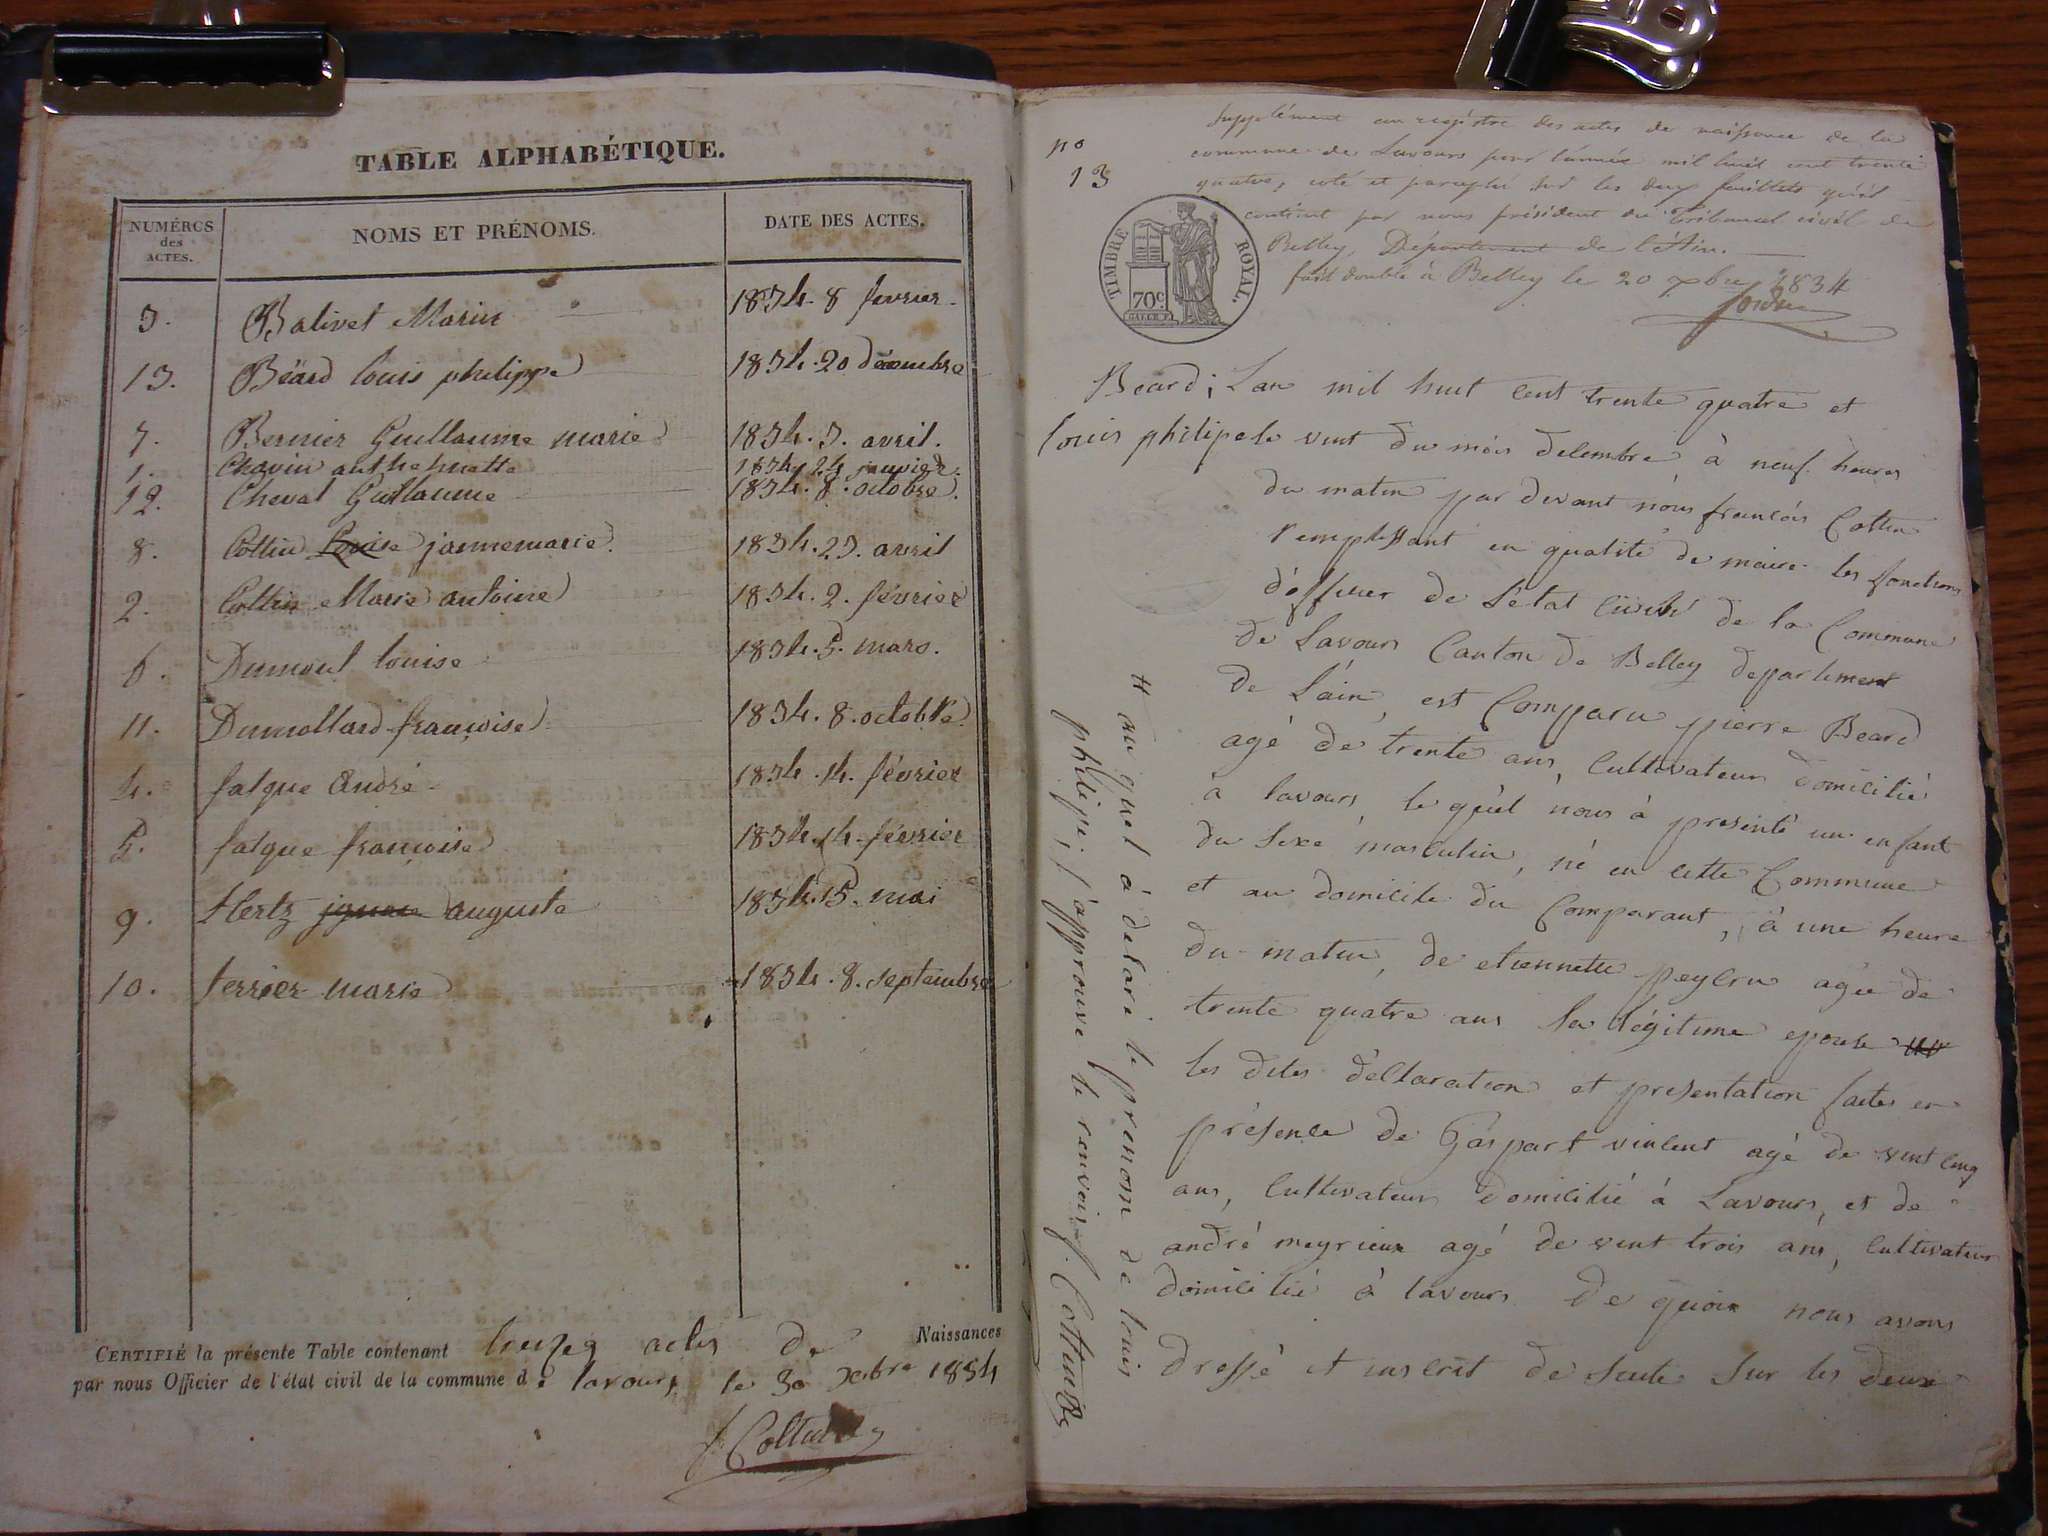 TABLE ALPHABÉTIQUE.
NUMÉROS des ACTES. NOMS ET PRÉNOMS. DATE DES ACTES.
3. Balivet Marin 1834. 8 fevrier.
13. Béard louis philippe 1834. 20 décembre
7. Bernier Guillaume marie 1834. 3. avril.
1. Chavin anthelmette 1834. 24 janvier.
12. Cheval Guillaume 1834. 8. octobre.
8. Cottin Louise jannemarie. 1834. 23. avril
2. Cottin Marie antoine 1834. 2. février
6. Dumont louise 1834. 5. mars.
11. Dumollard françoise 1834. 8. octobre.
4. falque André 1834. 14. février
5. falque françoise 1834. 14. février
9. Hertz auguste 1834. 15. mai
10. terrier marie 1834. 8. septembre
CERTIFIÉ la présente Table contenant treizes actes de Naissances
par nous Officier de l'état civil de la commune de lavours le 30 Xbre 1834
Cottin
no
13
Supplément au registre des actes de naissance de la
commune de Lavours pour l'année mil huit cent trente
quatre, coté et paraphé sur les deux feuillets qu'il
contient par nous président du Tribunal civil de
Belley, Département de l'Ain.
fait double à Belley le 20 Xbre 1834
TIMBRE ROYAL.
70c
Beard; Lan mil huit cent trente quatre et
louis philipe le vint du mois decembre à neuf heures
du matin par devant nous françois Cottin
remplissant en qualité de maire les fonctions
d'officier de L'état civil de la Commune
de Lavours Canton de Belley departement
de L'ain, est Comparu pierre Beard
agé de trente ans, Cultivateur domicilié
a lavours, le quel nous à presenté un enfant
du sexe masculin, né en cette Commune
et au domicile du Comparant, à une heure
du matin, de etiennette peycru agée de
trente quatre ans sa légitime epouse
les dites déclaration et presentation faites en
présence de Gaspart vincent agé de vint cinq
ans, Cultivateur domicilié à Lavours, et de
andré meyrieux agé de vint trois ans, Cultivateur
domicilié à lavours De quoi nous avons
dressé et inscrit de suite sur les deux
H au quel à declaré le prenom de louis
philipe, j'approuve le renvoi. Cottin